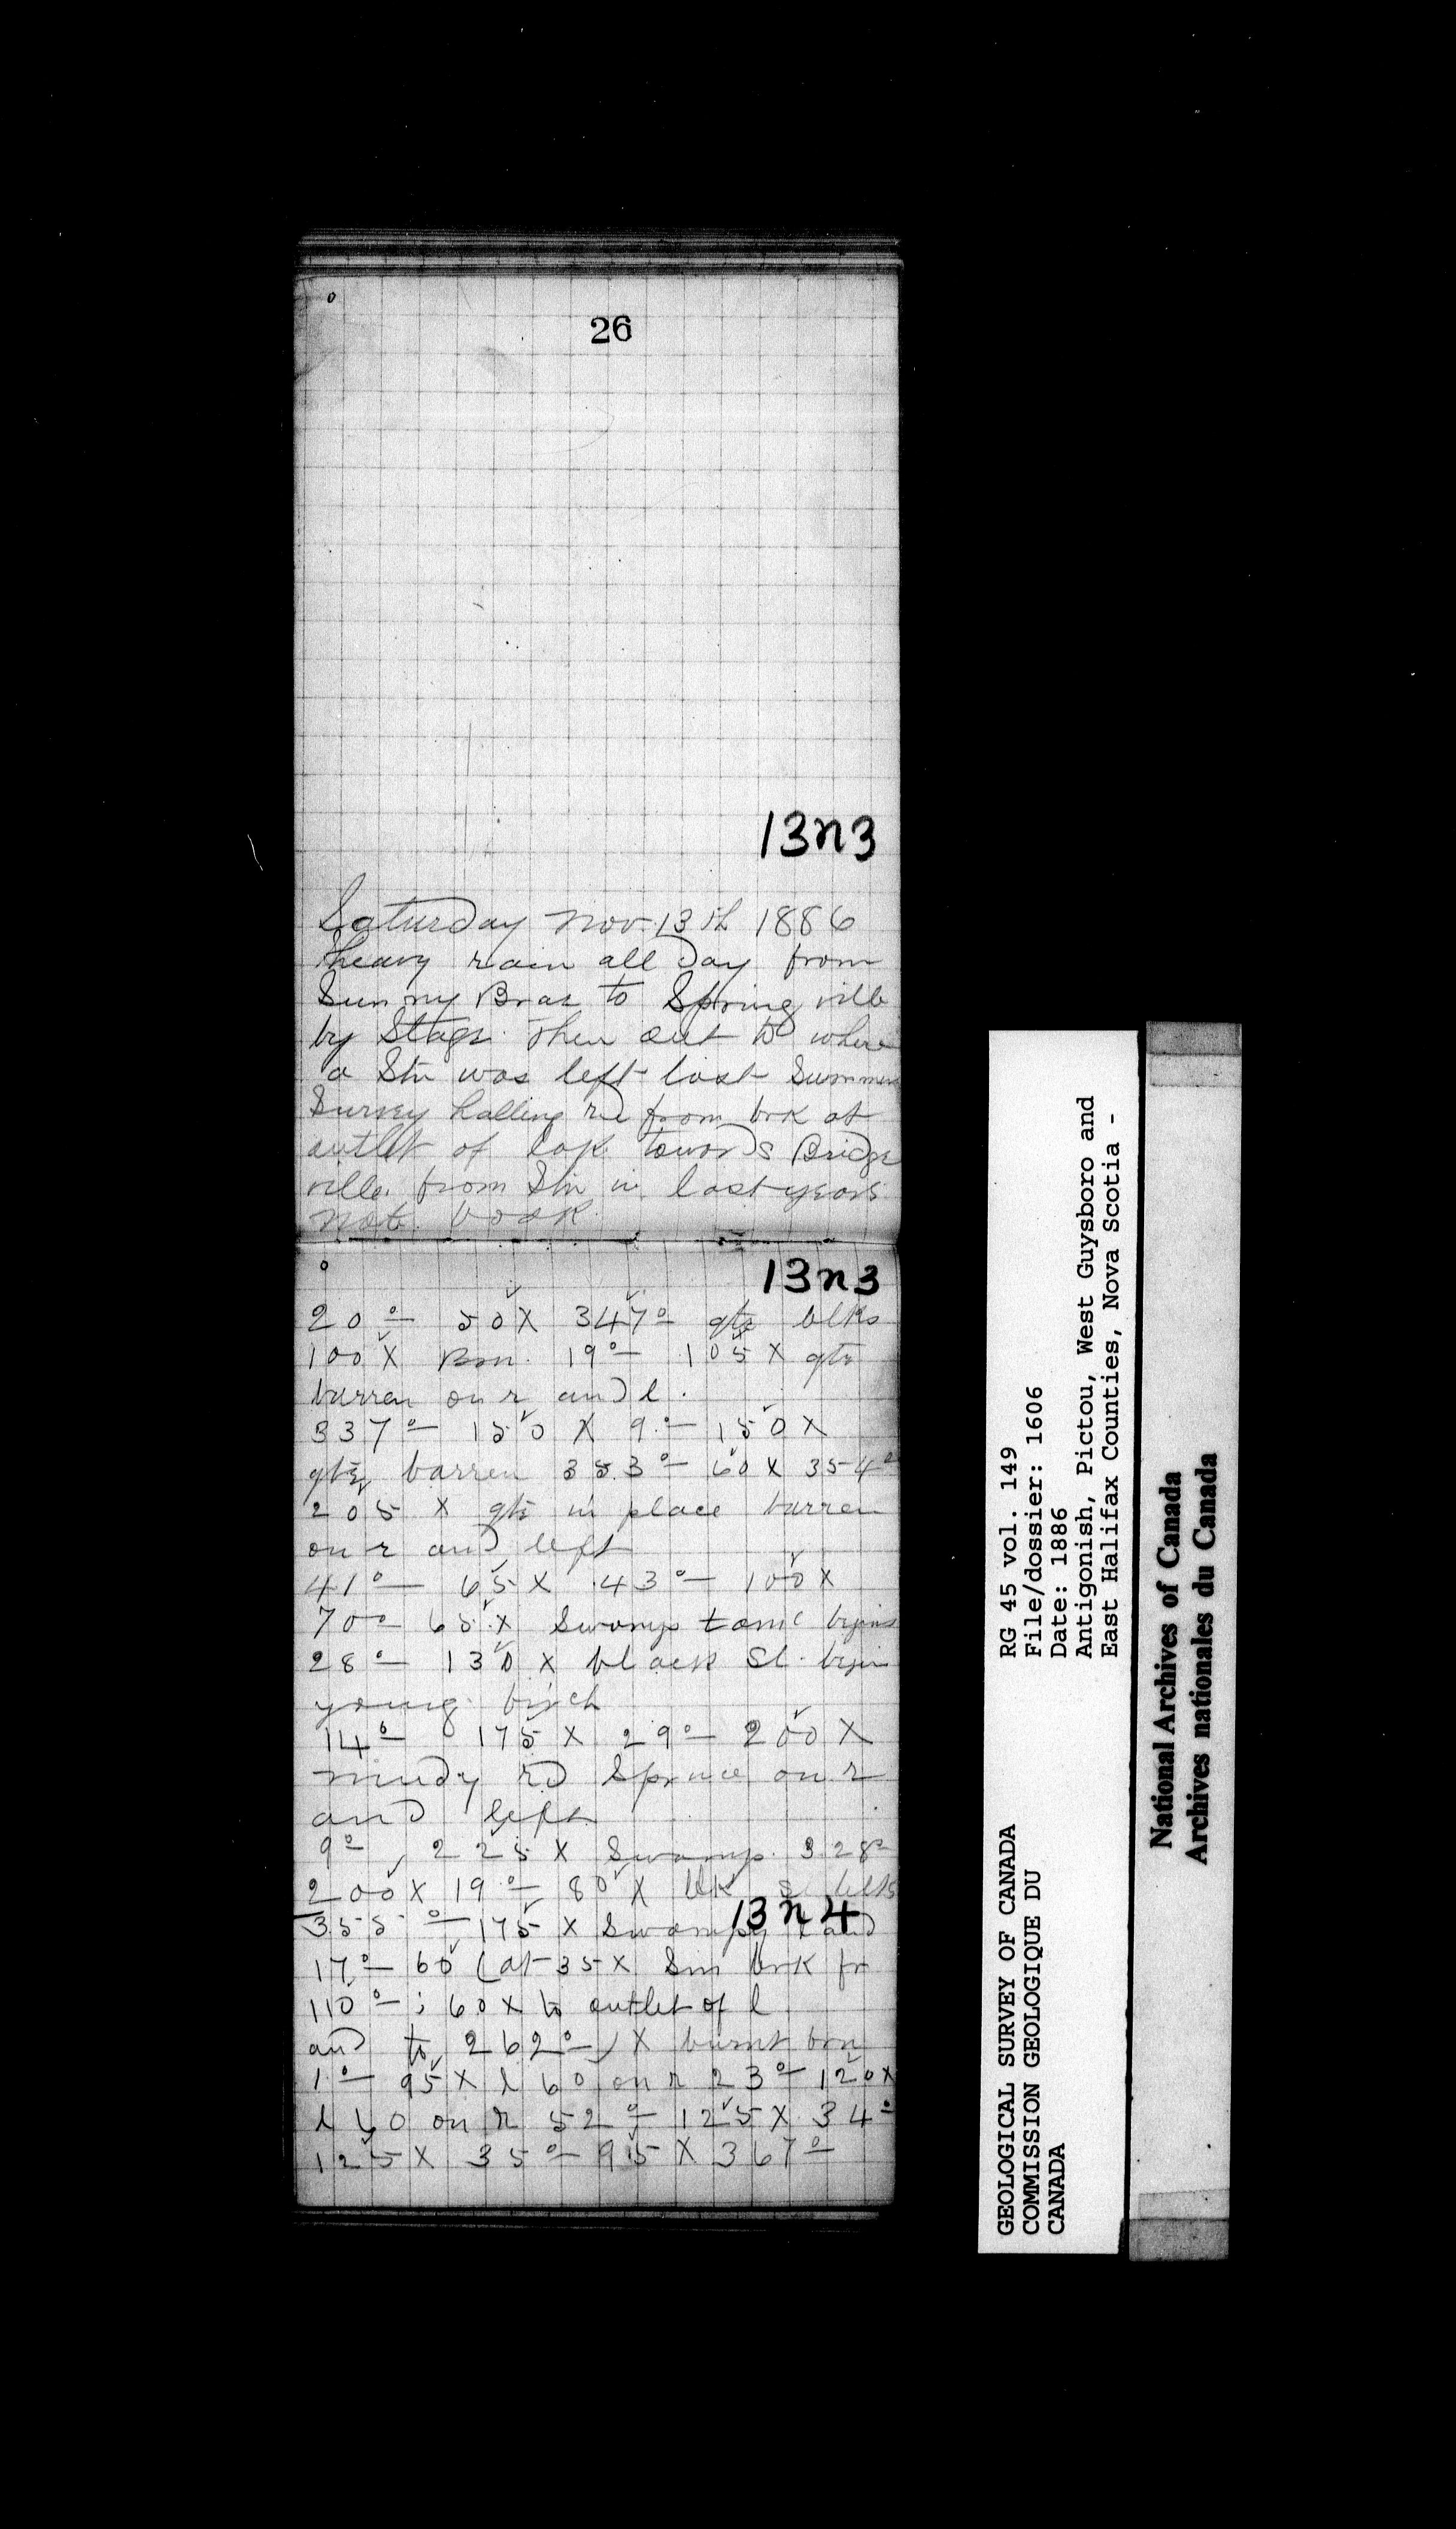 26
13n3
Saturday Nov. 13th 1886
heavy rain all day from
Sunny Brae to Spring ville
by Stage then out to where
a Stn was left last Summer
Survey halling rd from brk at
outlet of lake towards Bridge
ville from Stn in last years
note book
13n3
20° 50 X 347° qtz blks
100 X Brn. 19° 105 X qtz
barren on r and l.
337° 150 X 9° 150 X
qtz barren 353° 60 X 354°
205 X qtz in place barren
on r and left
41° 65 X 43° 100 X
70° 65 X Swamp begins
28° 130 X black Sl. begin
young birch
14° 175 X 29° 200 X
mudy rd Spruce on r
and left
9° 225 X Swamp. 328°
200 X 19° 80 X blk blks
13n4
355° 175 X Swampy land
17° 60 (at 35 X Sm brk fr
110° ; 60 X to outlet of l
and to 262°) X burnt brn
1° 95 X l 60 on r 23° 120 X
l 60 on r 52° 125 X 34°
125 X 35° 95 X 367°
GEOLOGICAL SURVEY OF CANADA
COMMISSION GEOLOGIQUE DU
CANADA
RG 45 vol. 149
File/dossier: 1606
Date: 1886
Antigonish, Pictou, West Guysboro and
East Halifax Counties, Nova Scotia -
National Archives of Canada
Archives nationales du Canada